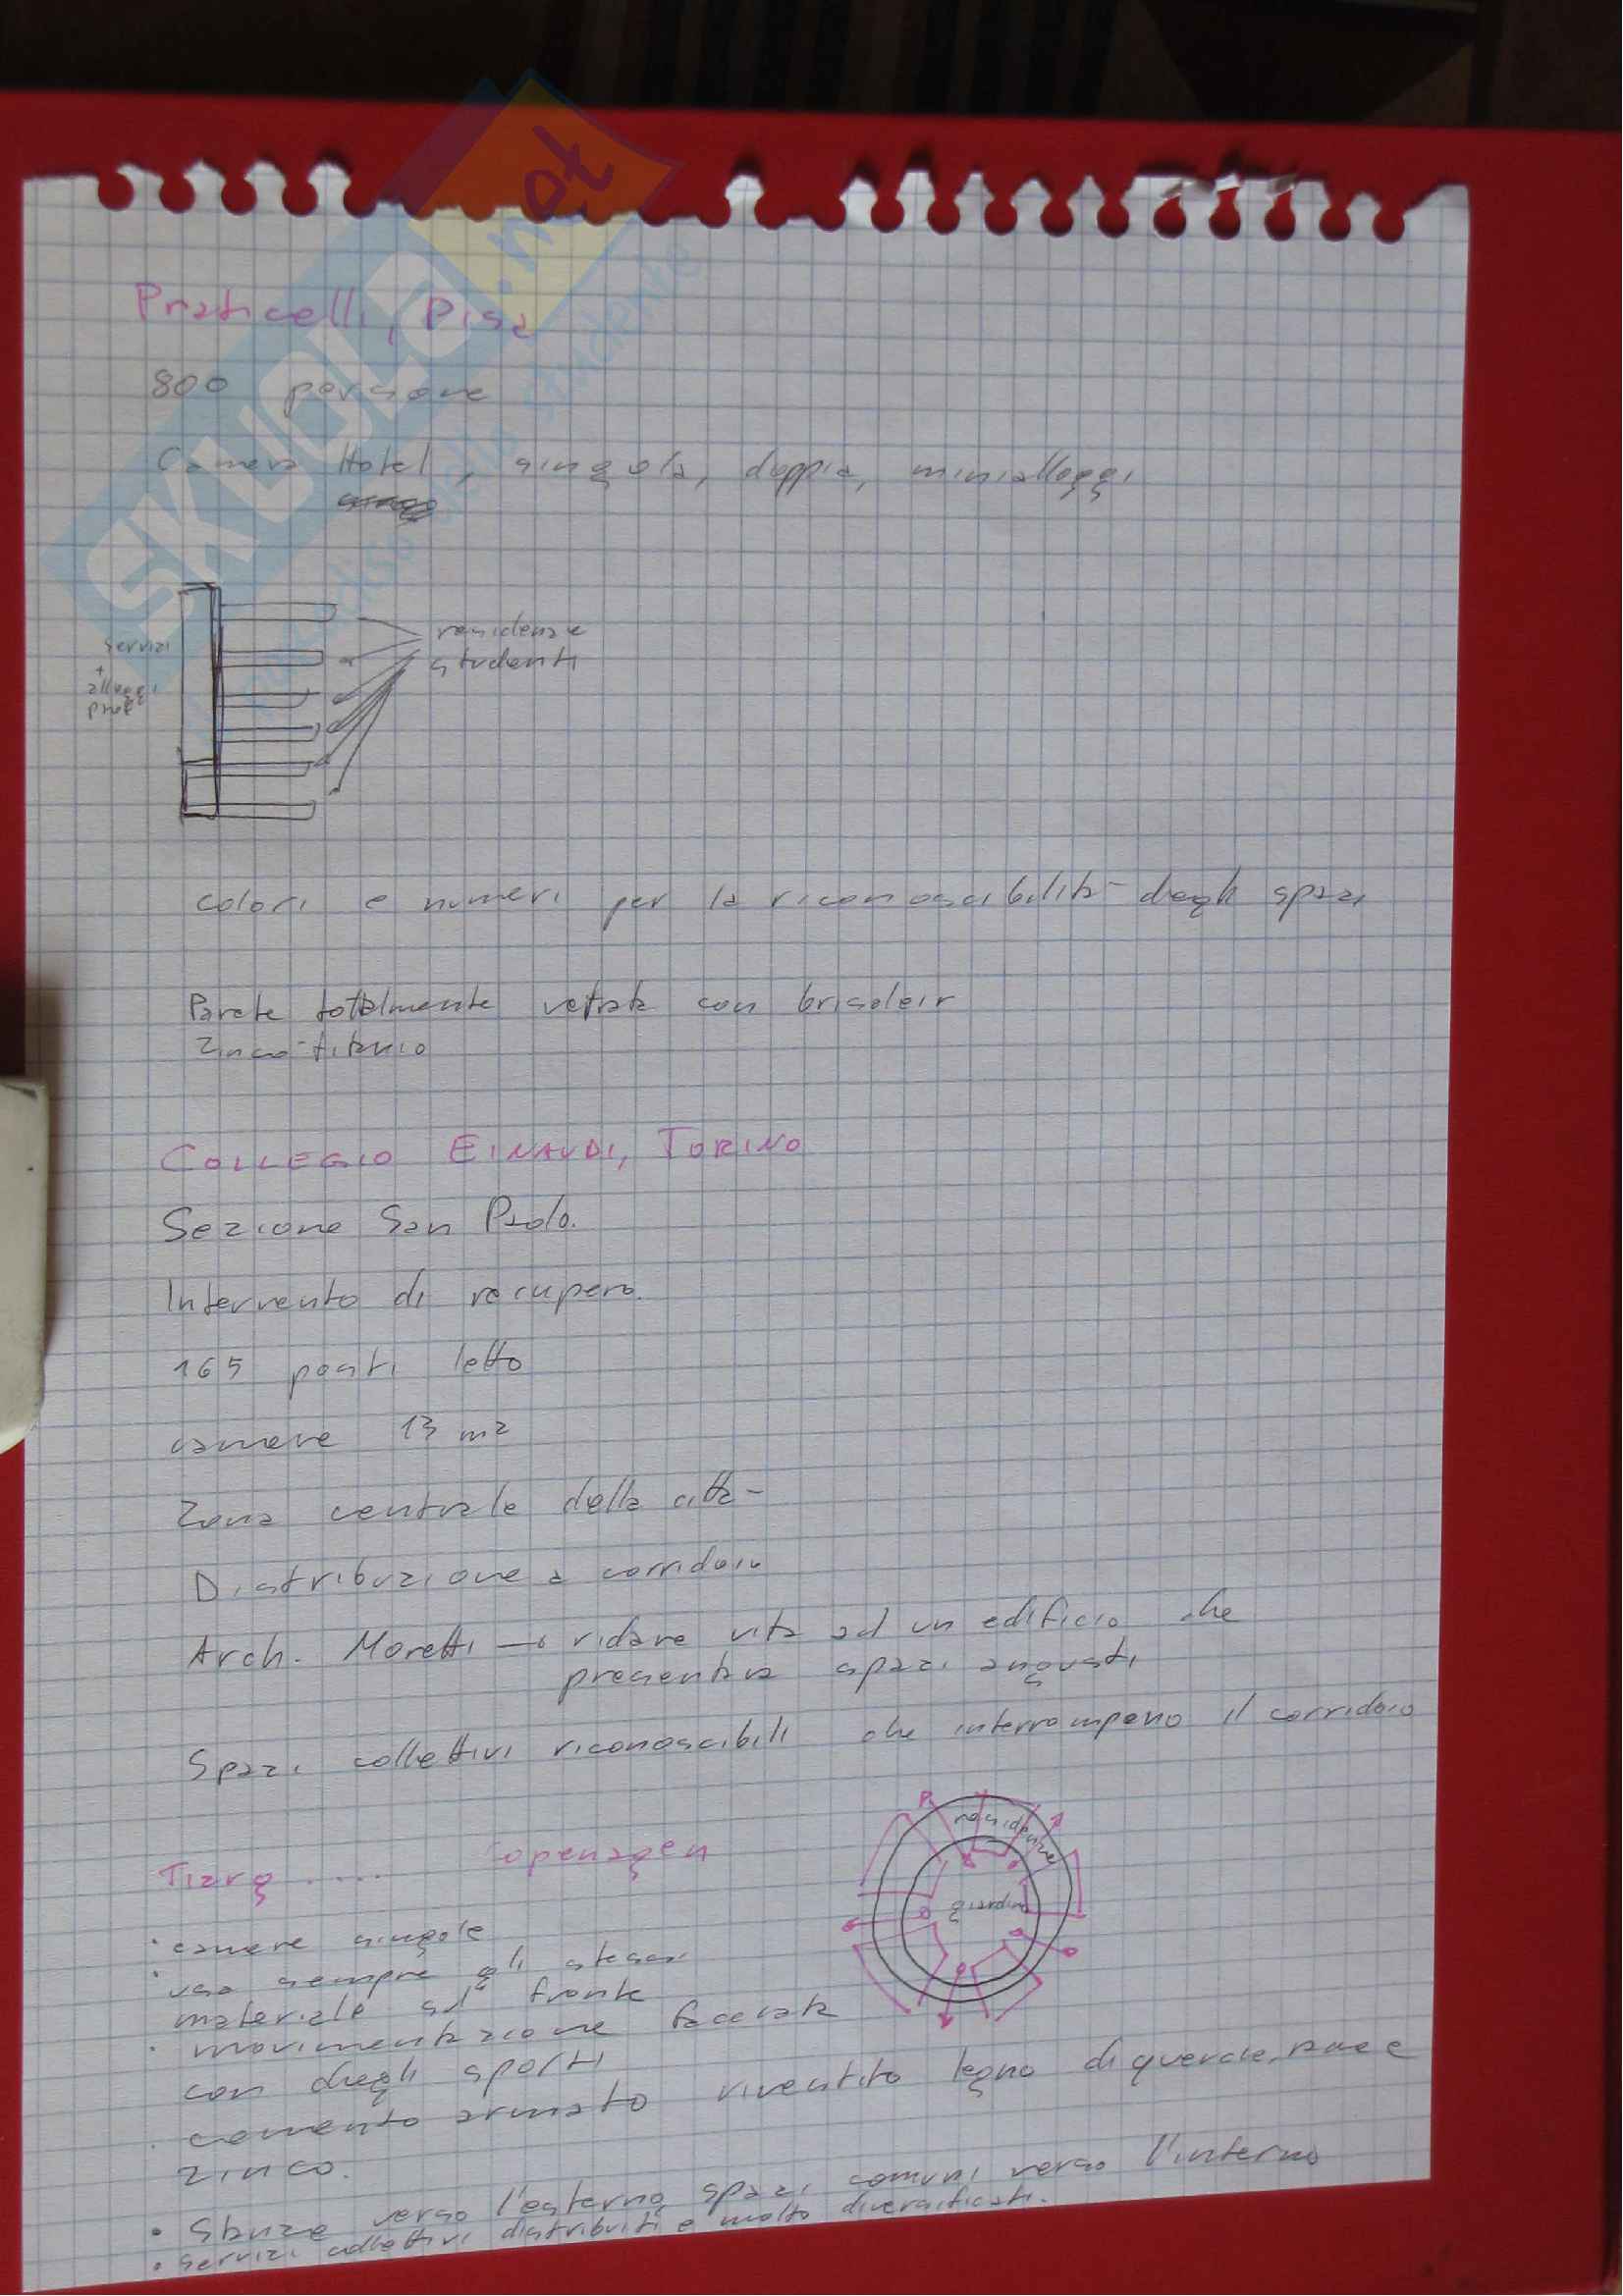 SKUOLA.net
Praticelli, Pisa
800 persone
Camera Hotel, singola, doppia, minialloggi
servizi
+
alloggi
prof
residenze
studenti
colori e numeri per la riconoscibilità degli spazi
Parete totalmente vetrata con brisoleir
zinco-titanio
COLLEGIO EINAUDI, TORINO
Sezione San Paolo.
Intervento di recupero.
165 posti letto
camere 13 m²
Zona centrale della città
Distribuzione a corridoio
Arch. Moretti → ridare vita ad un edificio che
presentava spazi angusti
Spazi collettivi riconoscibili che interrompono il corridoio
Tierg ..... Copenagen
residenze
· camere singole
· uso sempre gli stessi
materiale sul fronte
· movimentazione facciata
con degli sporti
· cemento armato rivestito legno di quercia, rame e
zinco.
• Stanze verso l'esterno, spazi comuni verso l'interno
• servizi collettivi distribuiti e molto diversificati.